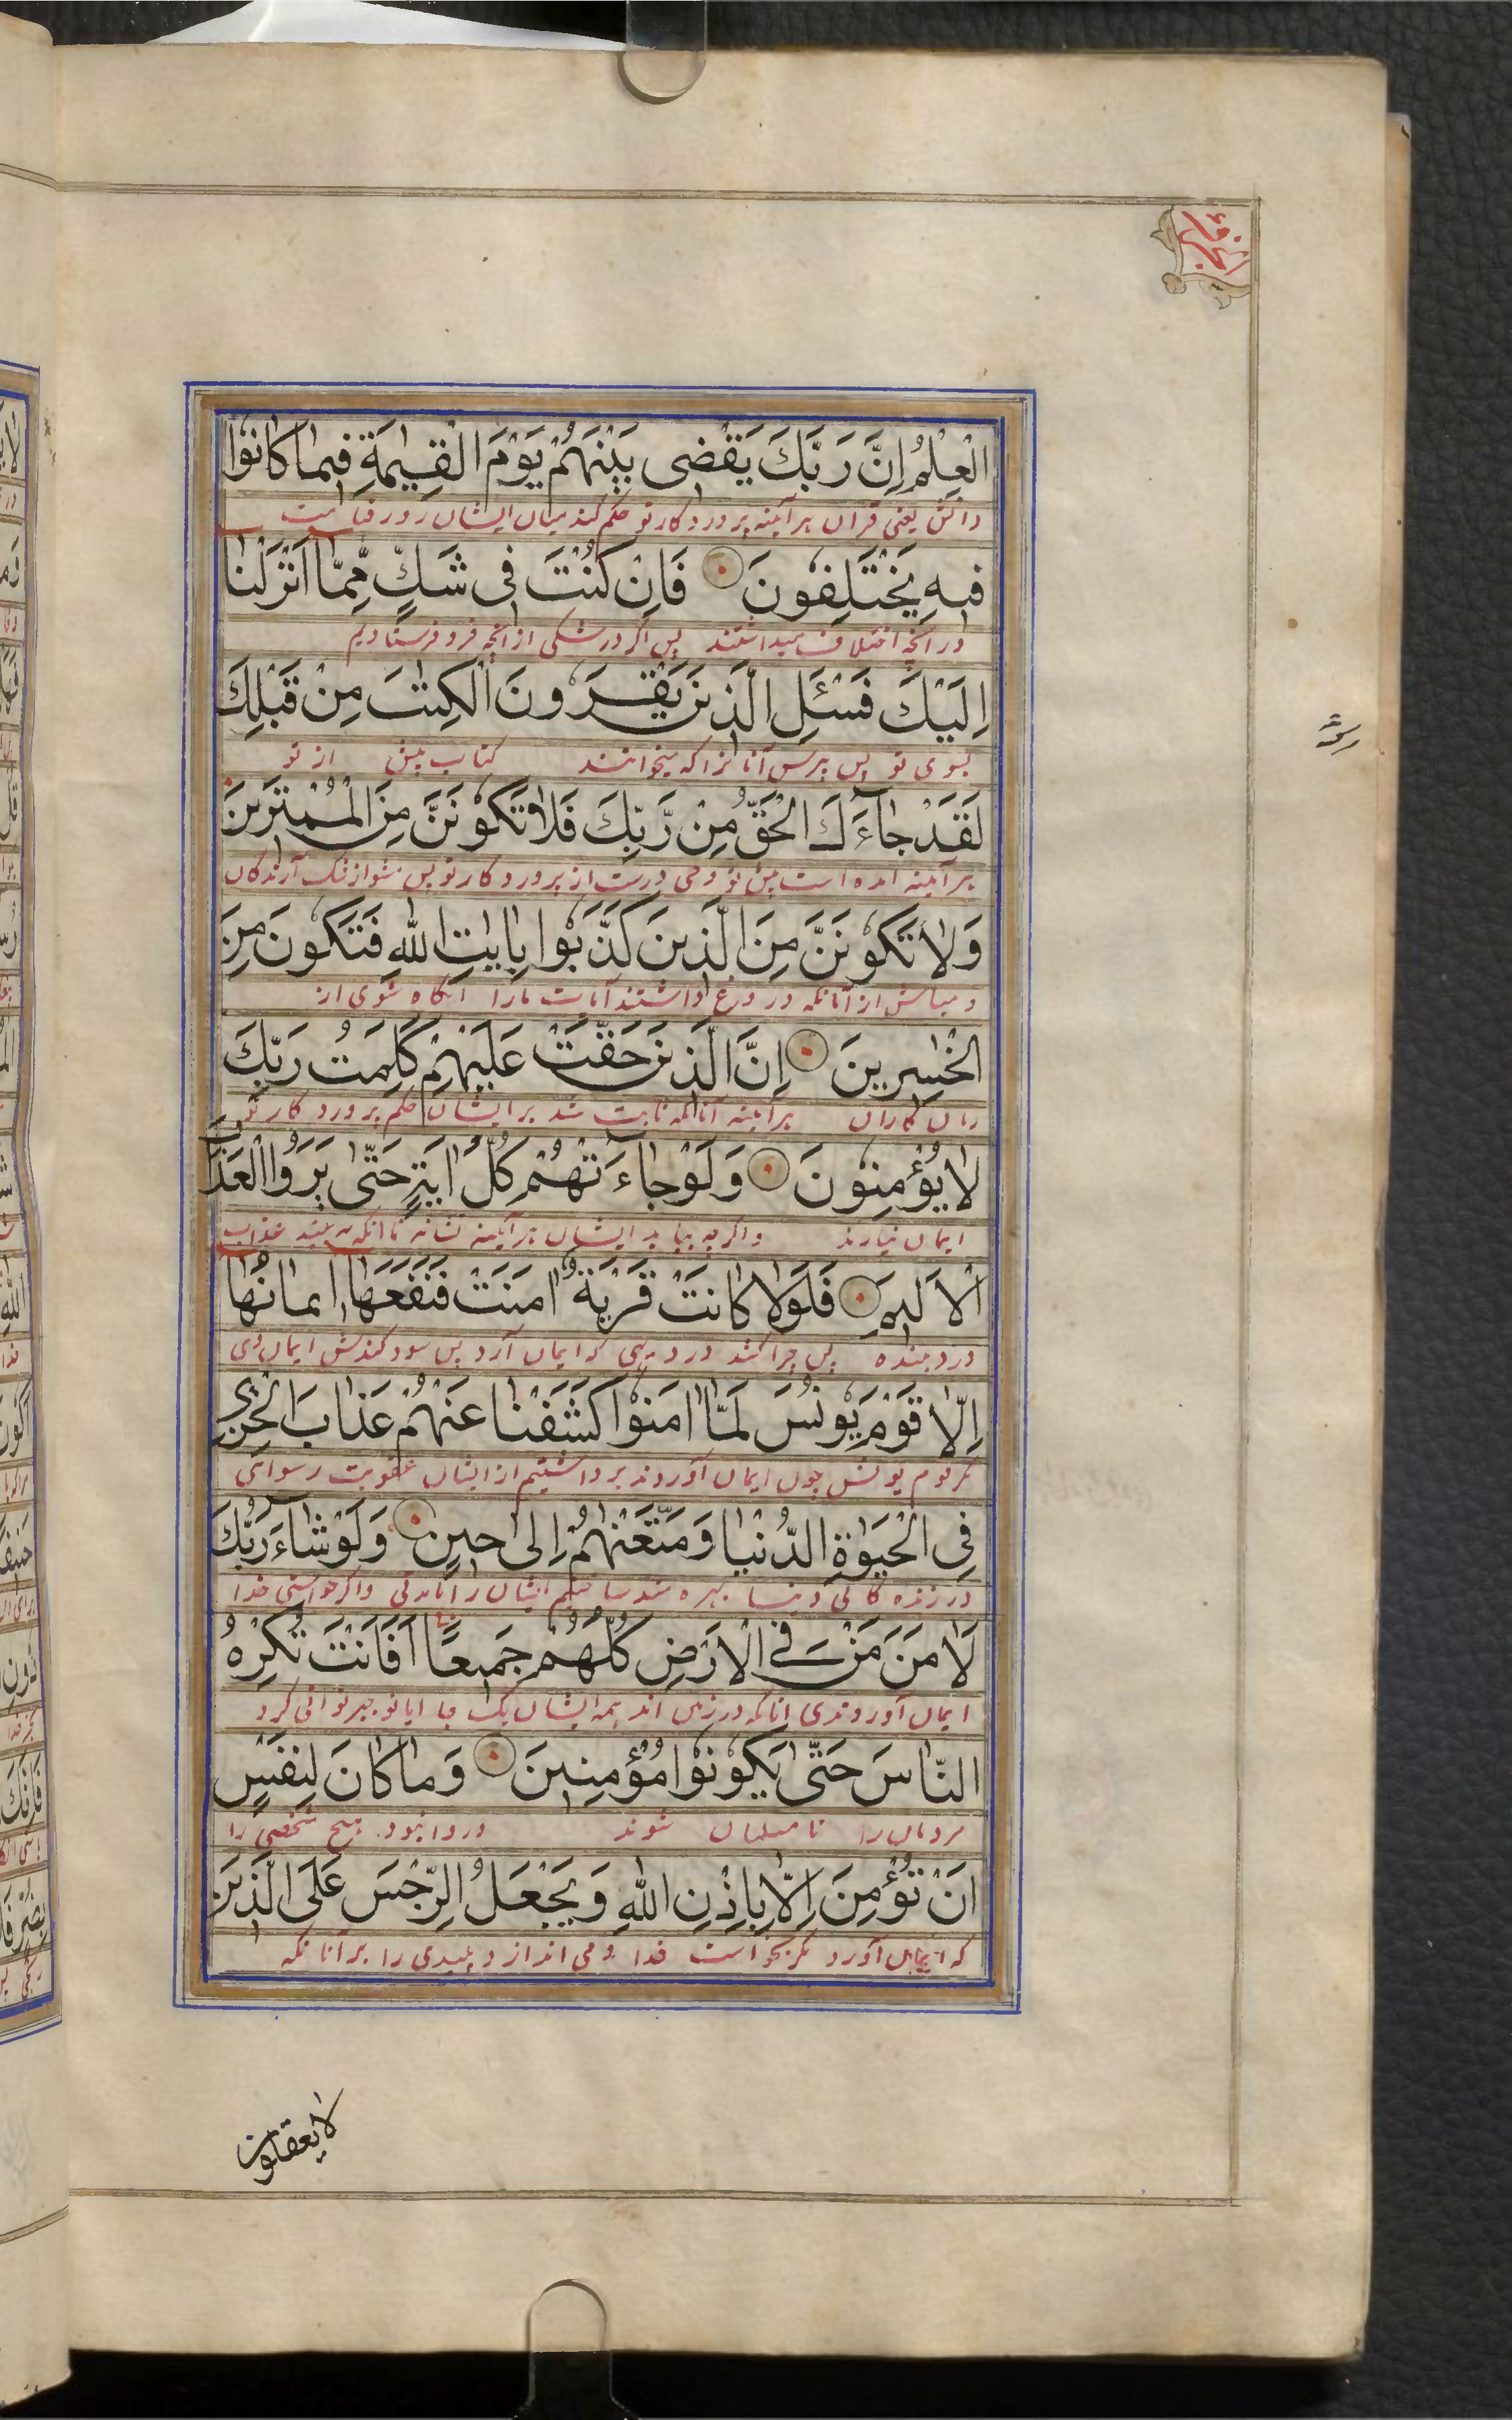 الْعِلْمُ اِنَّ رَبَّكَ يَقْضِى بَيْنَهُمْ يَوْمَ الْقِيٰمَةِ فِيمَا كَانُوْا
دانش یعنی قران هرآینه پروردکار تو حکم کند میان ایشان روز قیامت
فِيهِ يَخْتَلِفُونَ فَاِنْ كُنْتَ فِى شَكٍّ مِّمَّا اَنْزَلْنَا
در انچه اختلاف میداشتند پس اکر در شکی از انچه فرو فرستادیم
اِلَيْكَ فَسْـَٔلِ الَّذِينَ يَقْرَءُونَ الْكِتٰبَ مِنْ قَبْلِكَ
بسوی تو پس بپرس آنانرا که میخوانند کتاب پیش از تو
لَقَدْ جَآءَكَ الْحَقُّ مِنْ رَّبِّكَ فَلَا تَكُونَنَّ مِنَ الْمُمْتَرِينَ
هرآینه امده است پیش تو وحی درست از پروردکار تو پس مشو از شک آرندکان
وَلَا تَكُونَنَّ مِنَ الَّذِينَ كَذَّبُوا بِاٰيٰتِ اللّٰهِ فَتَكُونَ مِنَ
و مباش از آنانکه دروغ داشتند آیات مارا آنکاه شوی از
الْخٰسِرِينَ اِنَّ الَّذِينَ حَقَّتْ عَلَيْهِمْ كَلِمَتُ رَبِّكَ
زیان کاران هرآینه آنانکه ثابت شد بر ایشان حکم پروردکار تو
لَا يُؤْمِنُونَ وَلَوْ جَآءَتْهُمْ كُلُّ اٰيَةٍ حَتّٰى يَرَوُا الْعَذَابَ
ایمان نیارند واکرچه بیاید ایشان هرآینه نشانه تا انکه به بینند عذاب
الْاَلِيمَ فَلَوْلَا كَانَتْ قَرْيَةٌ اٰمَنَتْ فَنَفَعَهَا اِيمَانُهَا
درد دهنده پس چرا نشد در دیهی که ایمان آرد پس سود کندش ایمان وی
اِلَّا قَوْمَ يُونُسَ لَمَّا اٰمَنُوا كَشَفْنَا عَنْهُمْ عَذَابَ الْخِزْىِ
مکر قوم یونس چون ایمان آوردند برداشتیم از ایشان عقوبت رسوائی
فِى الْحَيٰوةِ الدُّنْيَا وَمَتَّعْنٰهُمْ اِلٰى حِينٍ وَلَوْ شَآءَ رَبُّكَ
در زنده کانی دنیا بهره مند ساختیم ایشان را تا مدتی واکر خواستی خدا
لَاٰمَنَ مَنْ فِى الْاَرْضِ كُلُّهُمْ جَمِيعًا اَفَاَنْتَ تُكْرِهُ
ایمان آوردندی انانکه در زمین اند همه ایشان یک جا ایا تو جبر توانی کرد
النَّاسَ حَتّٰى يَكُونُوا مُؤْمِنِينَ وَمَا كَانَ لِنَفْسٍ
مردمان را تا مسلمان شوند و روا نبود هیچ شخصی را
اَنْ تُؤْمِنَ اِلَّا بِاِذْنِ اللّٰهِ وَيَجْعَلُ الرِّجْسَ عَلَى الَّذِينَ
که ایمان آورد مکر بخواست خدا و می اندازد پلیدی را بر آنانکه
لا یعقلون